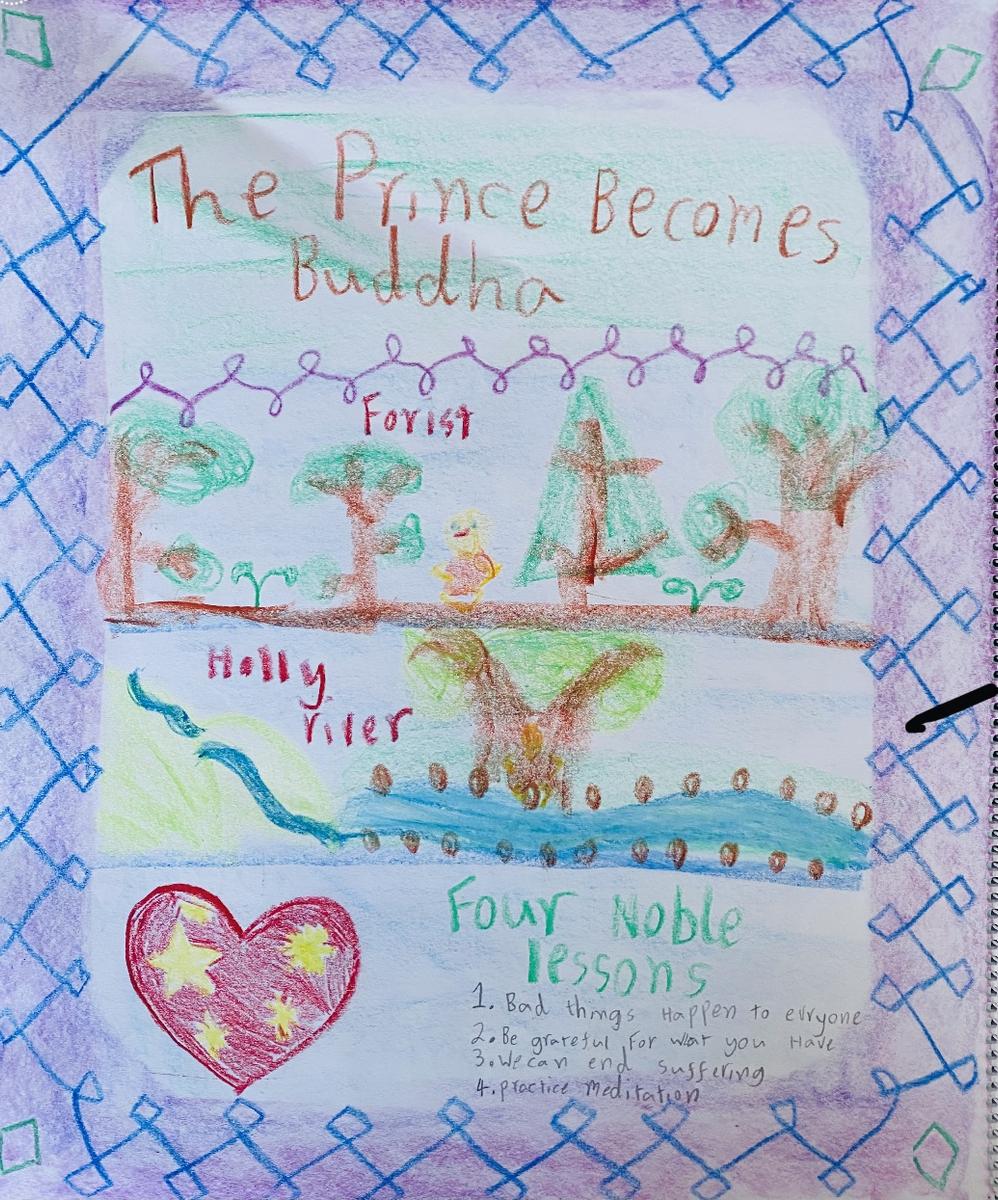 The Prince Becomes
Buddha
Forist
Holly
river
Four Noble
lessons
1. Bad things Happen to evryone
2. Be grateful for what you Have
3. We can end suffering
4. practice meditation